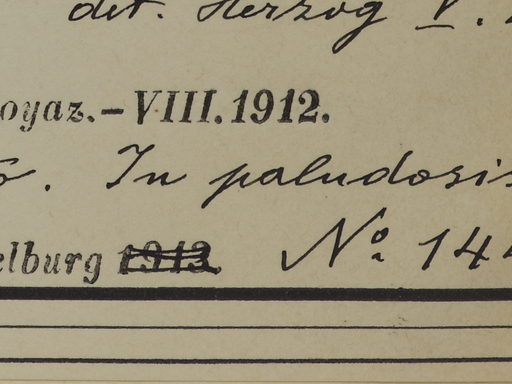 det. Herzog V.
oyaz.–VIII. 1912.
. In paludosis
elburg 1913. No 14